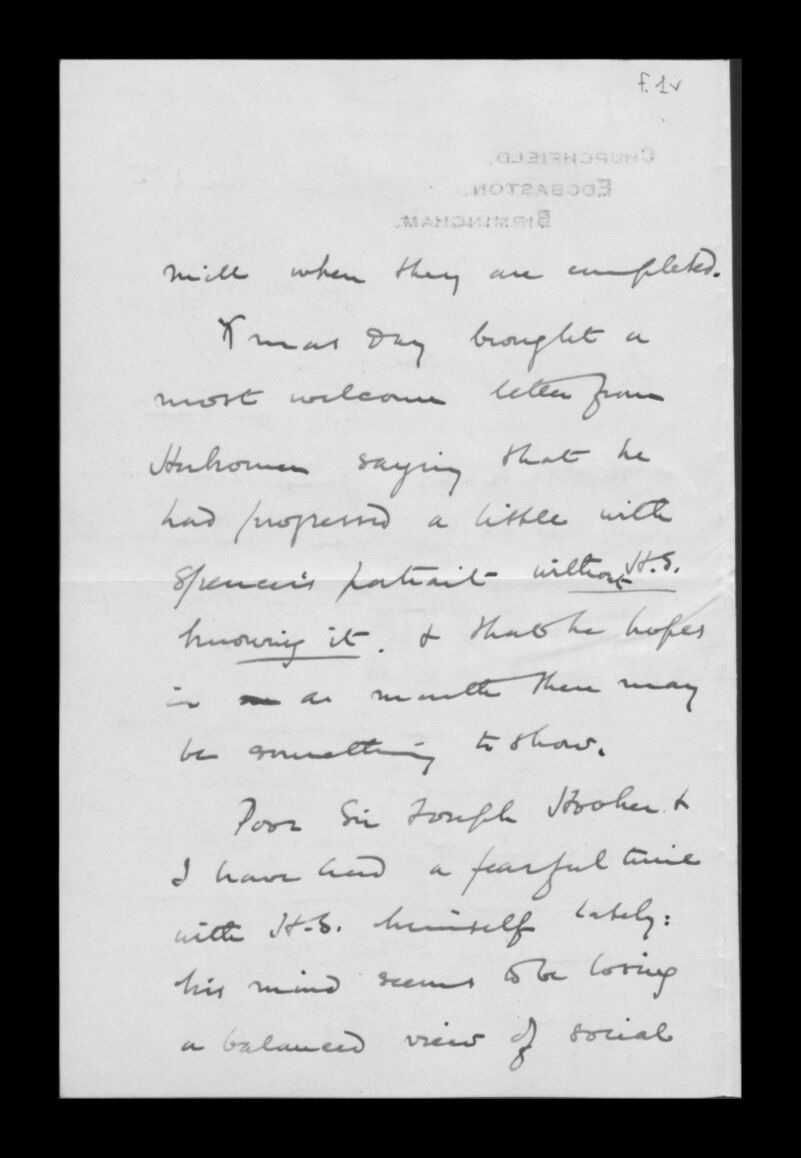 f.1v
CHURCHFIELD,
EDGBASTON.
BIRMINGHAM.
mill when they are completed.
Xmas Day brought a
most welcome letter from
Herkomer saying that he
had progressed a little with
Spencer's portrait without H.S.
knowing it. & that he hopes
in a month there may
be something to show.
Poor Sir Joseph Hooker &
I have had a fearful time
with H.S. himself lately:
his mind seems to be losing
a balanced view of social